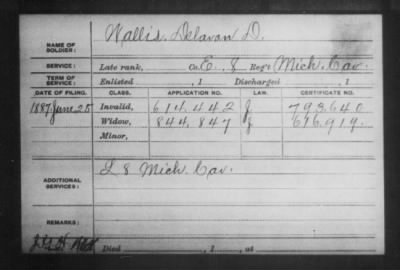 Wallis, Delavan D.
NAME OF SOLDIER:
SERVICE: Late rank, Co. E, 8 Reg't Mich. Cav.
TERM OF SERVICE: Enlisted , 1 Discharged , 1
DATE OF FILING. CLASS. APPLICATION NO. LAW. CERTIFICATE NO.
1887 June 25 Invalid, 614.442 J 793.640
Widow, 844,847 J 616.919.
Minor,
L 8 Mich. Cav.
ADDITIONAL SERVICES:
REMARKS:
Died , 1 , at